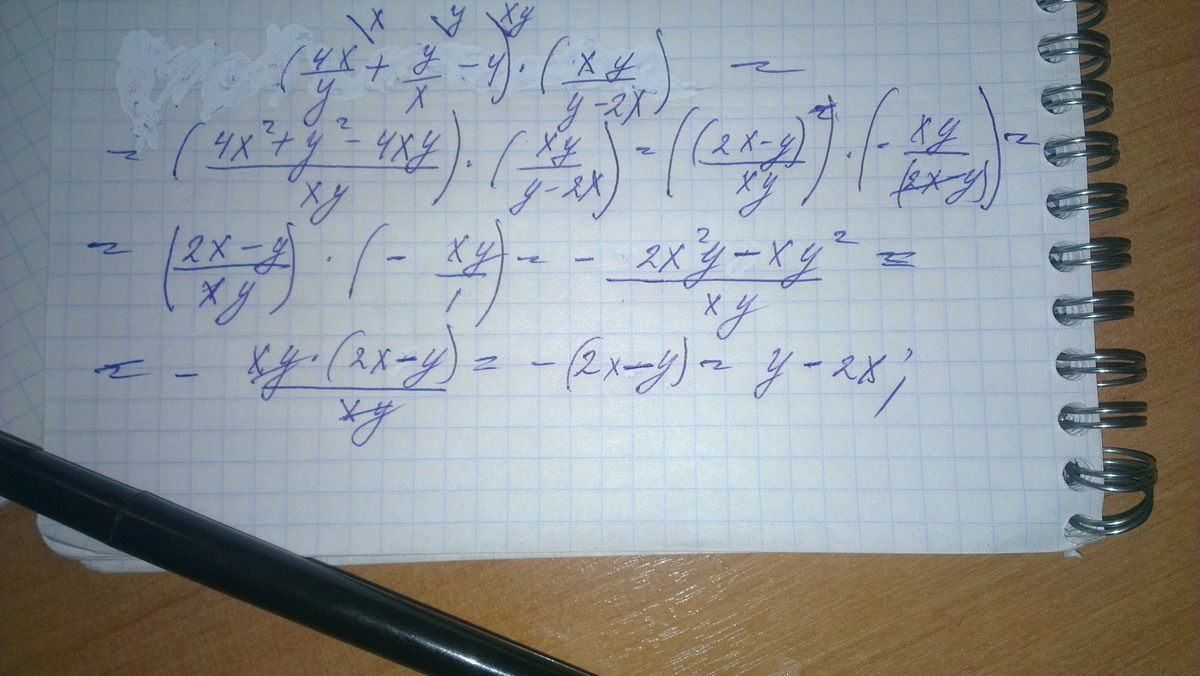 \x \y \xy
(4x/y + y/x - 4) · (xy/(y-2x)) =
= ((4x²+y²-4xy)/xy) · (xy/(y-2x)) = ((2x-y)²/xy) · (- xy/(2x-y)) =
= ((2x-y)/xy) · (- xy/1) = - (2x²y-xy²)/xy =
= - xy·(2x-y)/xy = -(2x-y) = y-2x;